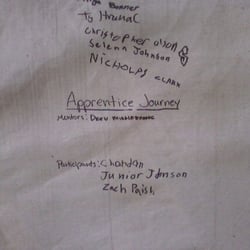 Banner
Ty Hrunac
Christopher olson
Selena Johnson
NicHOLAS CLARK
Apprentice Journey
Mentors: Drew
Participants: Chandan
Junior Johnson
Zach Paish